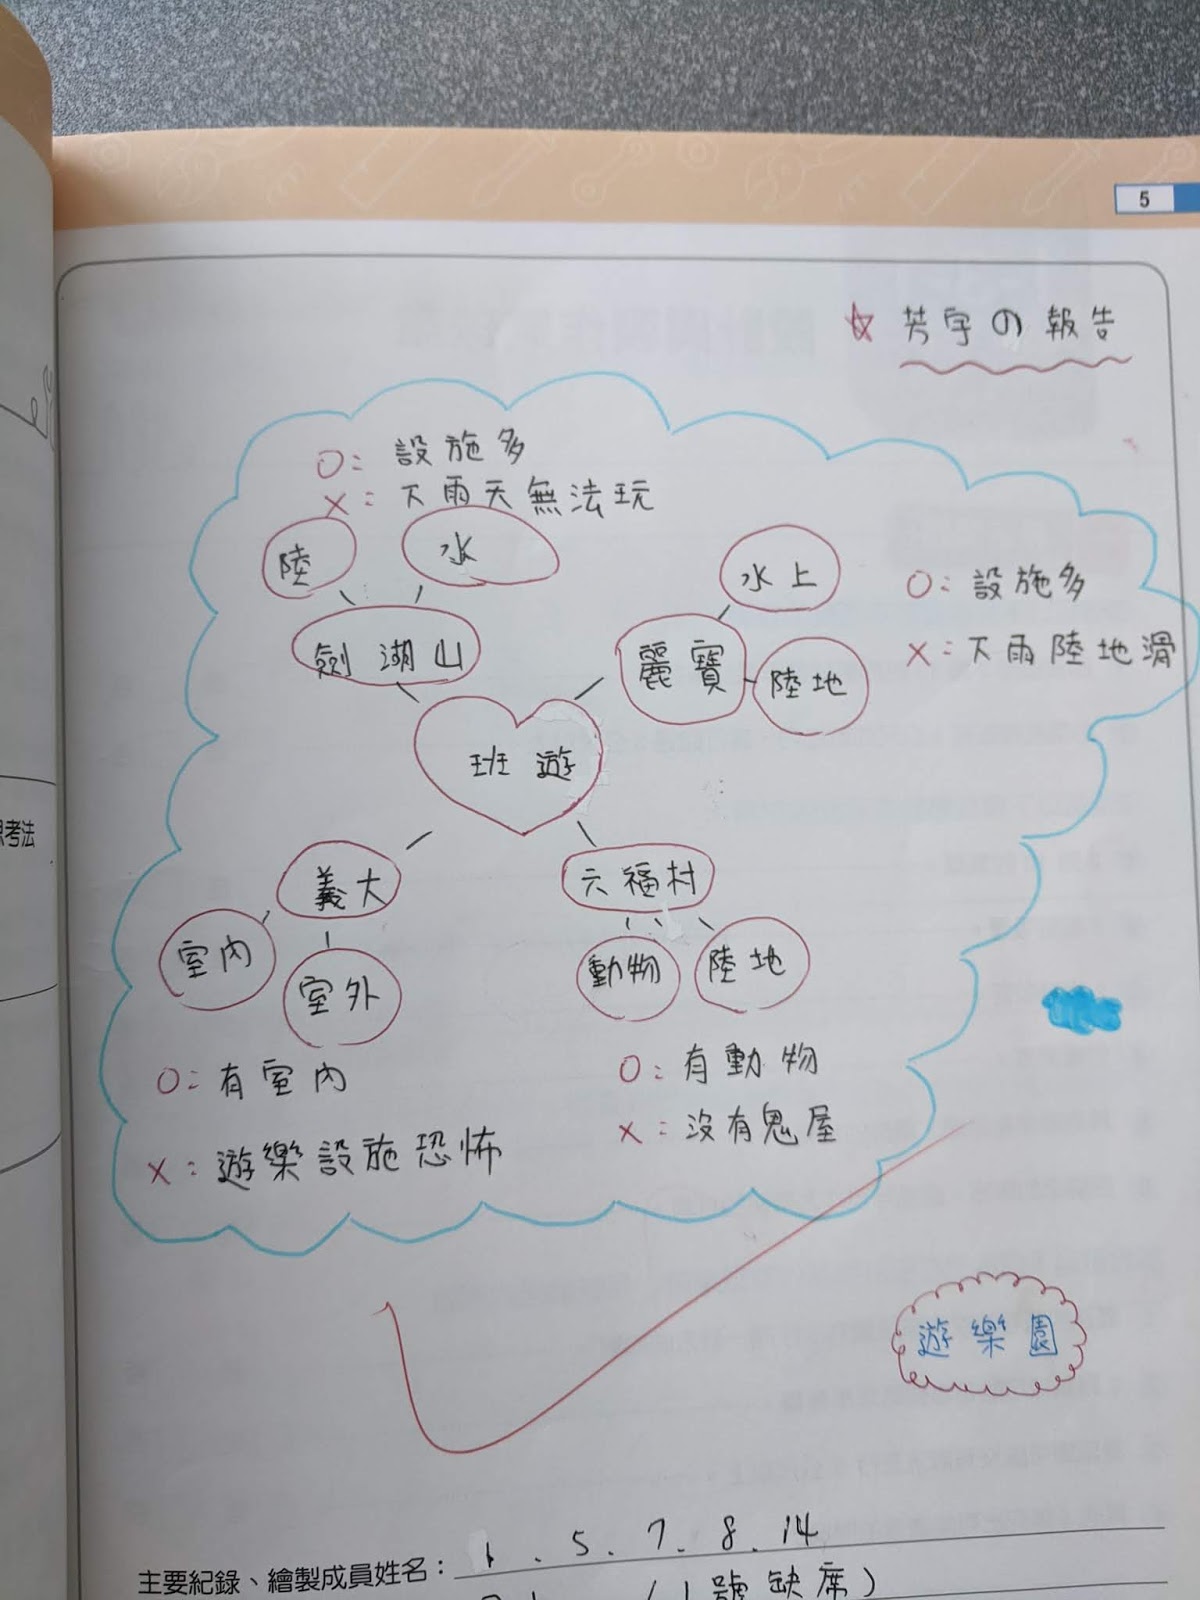 5
☆ 芳宇の報告
O: 設施多
X: 下雨天無法玩
陸
水
劍湖山
水上
麗寶
陸地
O: 設施多
X: 下雨陸地滑
班遊
義大
室內
室外
六福村
動物
陸地
O: 有室內
X: 遊樂設施恐怖
O: 有動物
X: 沒有鬼屋
思考法
遊樂園
主要紀錄、繪製成員姓名: 1、5、7、8、14
(1號缺席)